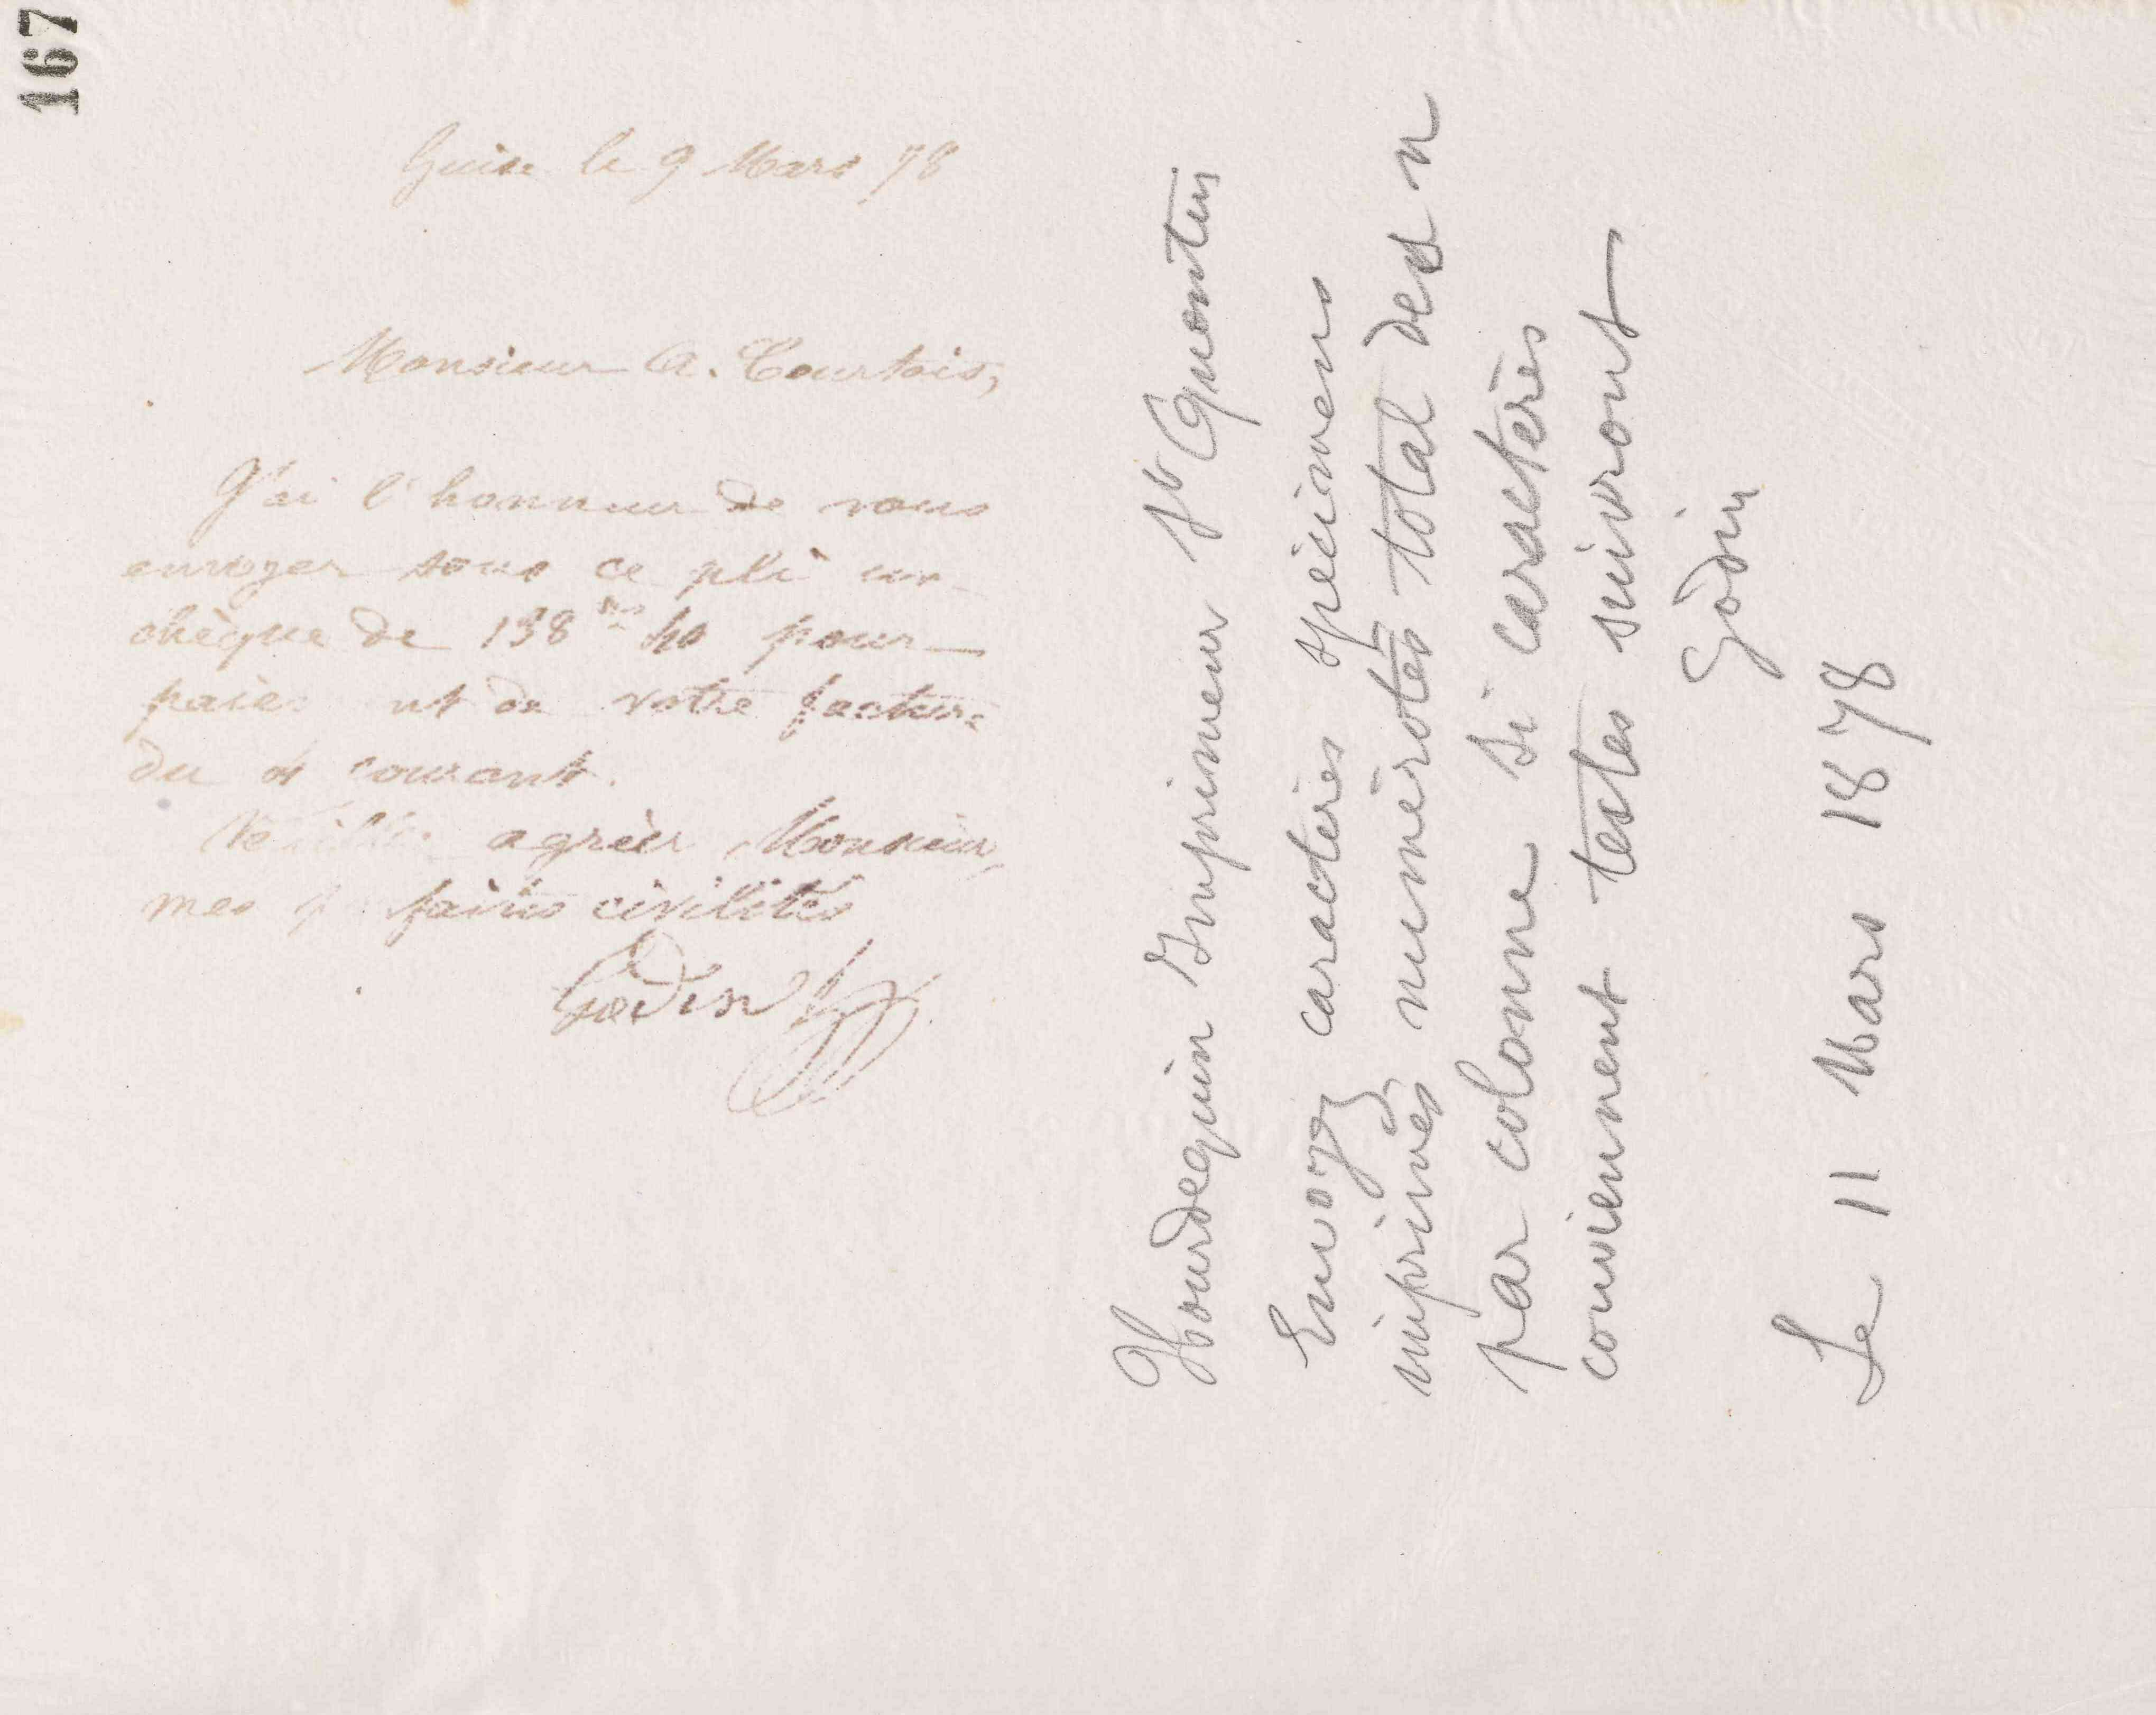 167
Guise le 9 Mars 78
Monsieur A. Courtois,
J'ai l'honneur de vous
envoyer sous ce pli un
chèque de 138 40 pour
paiement de votre facture
du 4 courant.
Veuillez agréer Monsieur,
mes parfaites civilités
Godin
Hourdequin Imprimeur St Quentin
Envoyez caractères spécimens
imprimés numérotés total des n
par colonne si caractères
conviennent textes suivront
Godin
Le 11 Mars 1878